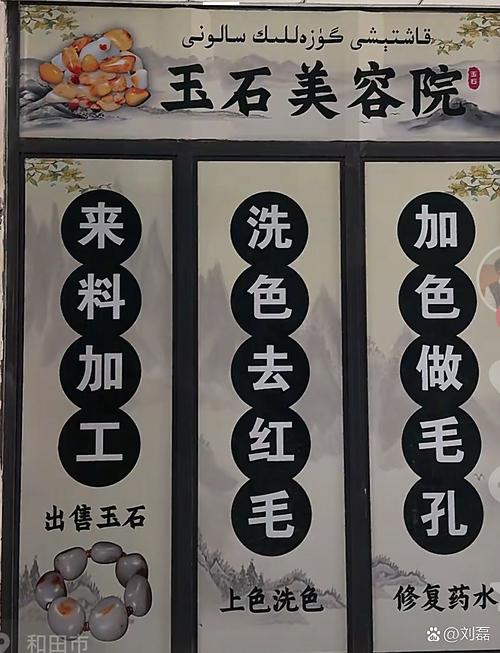 قاشتېشى گۈزەللىك سالونى
玉石美容院
玉石
来料加工
出售玉石
洗色去红毛
上色洗色
加色做毛孔
修复药水
和田市
@刘磊